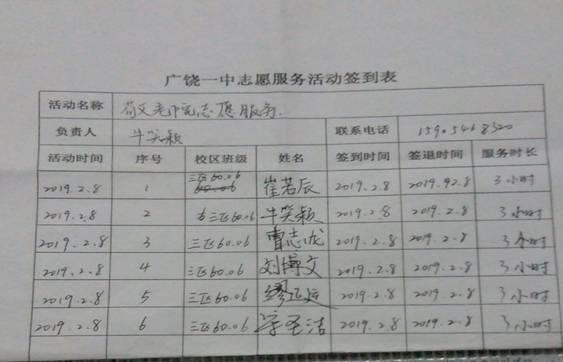 广饶一中志愿服务活动签到表
活动名称 敬老院志愿服务.
负责人 牛笑颖 联系电话 15905468320
活动时间 序号 校区班级 姓名 签到时间 签退时间 服务时长
2019.2.8 1 三区60.06 崔若辰 2019.2.8 2019.2.8 3小时
2019.2.8 2 三区60.06 牛笑颖 2019.2.8 2019.2.8 3小时
2019.2.8 3 三区60.06 曹志成 2019.2.8 2019.2.8 3小时
2019.2.8 4 三区60.06 刘博文 2019.2.8 2019.2.8 3小时
2019.2.8 5 三区60.06 2019.2.8 2019.2.8 3小时
2019.2.8 6 三区60.06 2019.2.8 2019.2.8 3小时